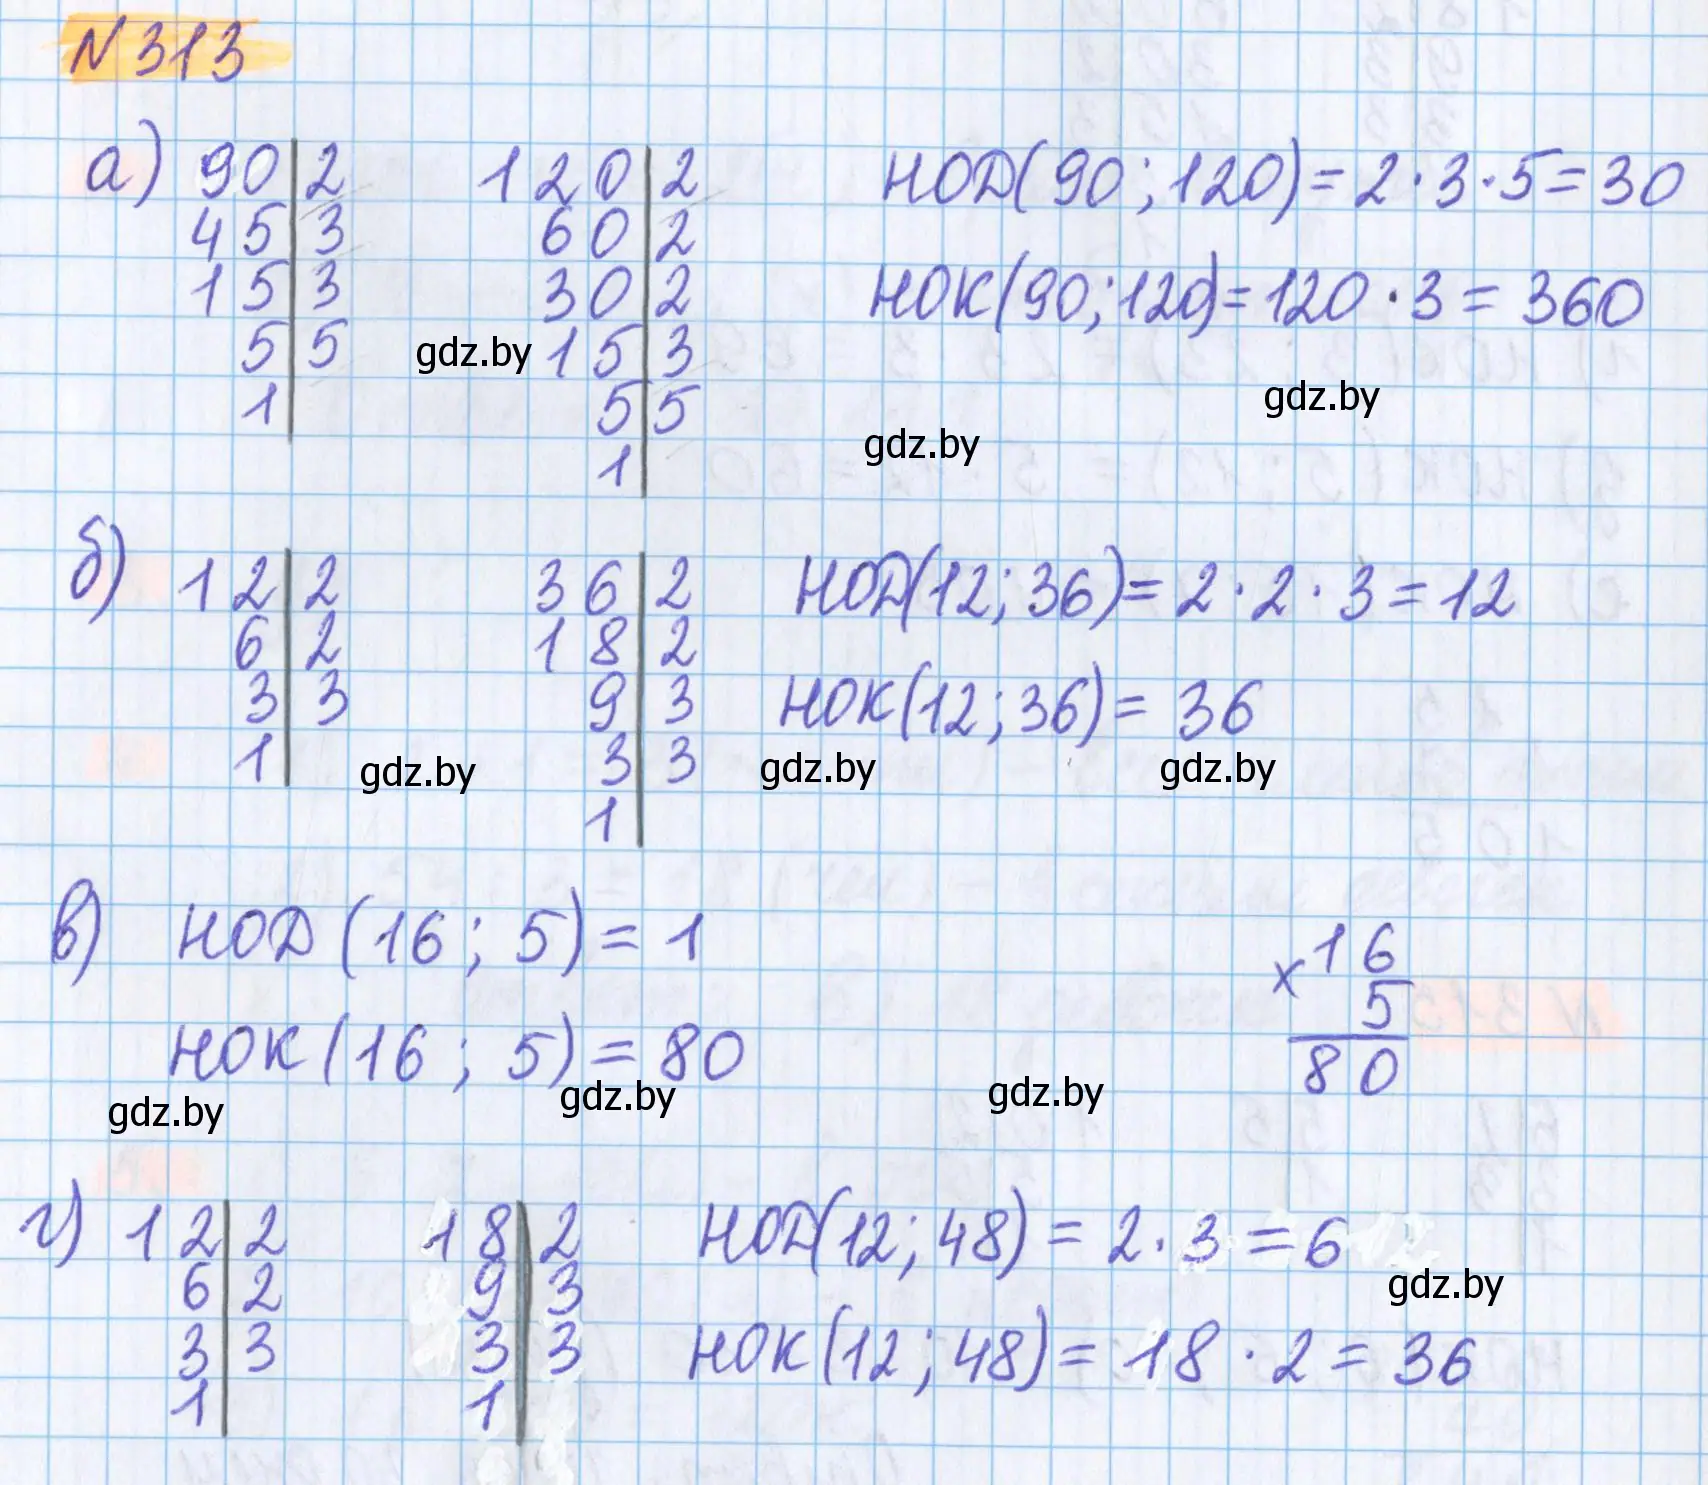 N 313
а) 90 | 2    120 | 2    НОД(90; 120) = 2 · 3 · 5 = 30
45 | 3    60 | 2
15 | 3    30 | 2    НОК(90; 120) = 120 · 3 = 360
5 | 5    gdz.by    15 | 3
1 |    5 | 5    gdz.by
1 |    gdz.by
б) 12 | 2    36 | 2    НОД(12; 36) = 2 · 2 · 3 = 12
6 | 2    18 | 2
3 | 3    9 | 3    НОК(12; 36) = 36
1 |    gdz.by    3 | 3    gdz.by    gdz.by
1 |
в) НОД (16; 5) = 1    × 16
5
НОК (16; 5) = 80    80
gdz.by    gdz.by    gdz.by
г) 12 | 2    18 | 2    НОД(12; 48) = 2 · 3 = 6
6 | 2    9 | 3    gdz.by
3 | 3    3 | 3    НОК(12; 48) = 18 · 2 = 36
1 |    1 |